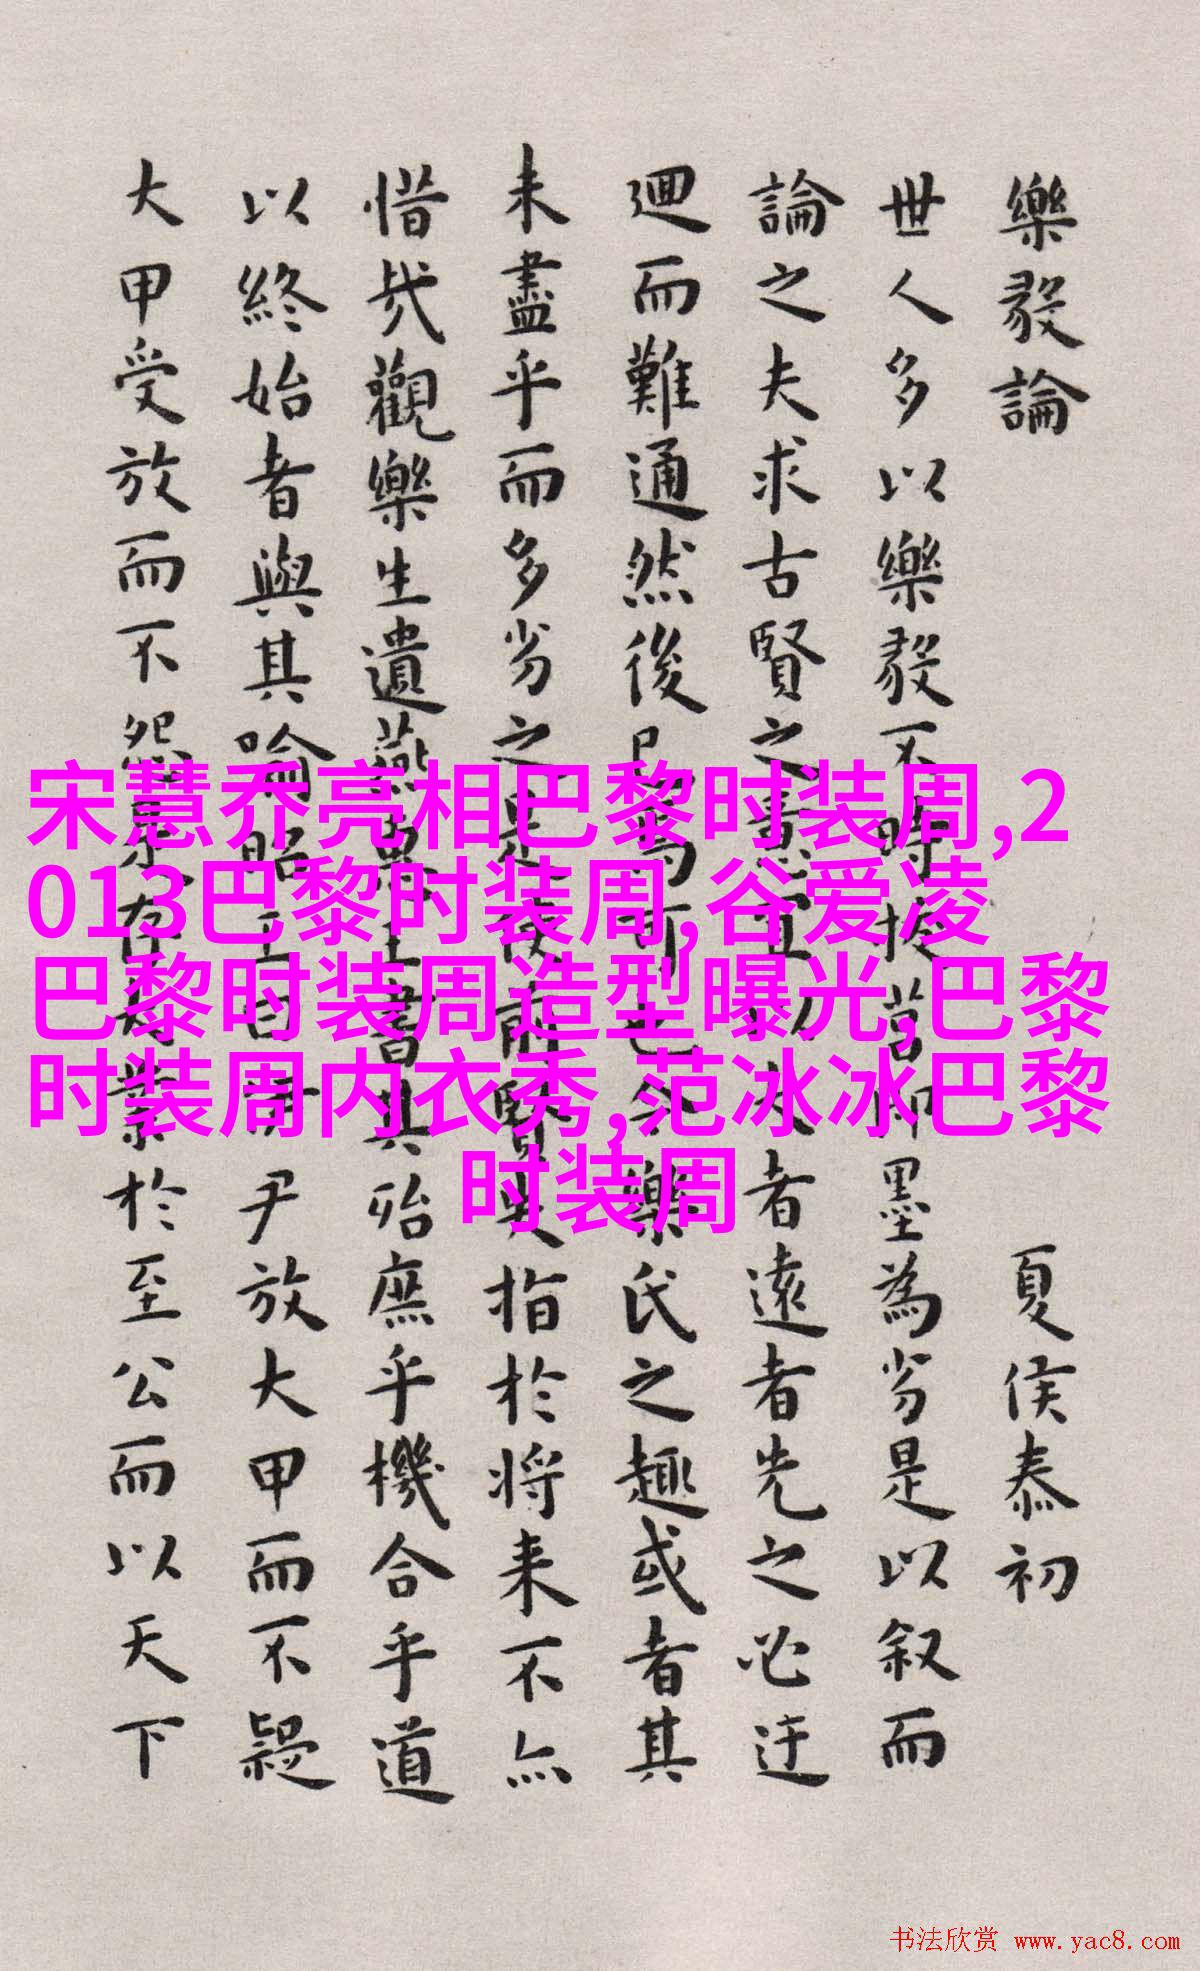 樂毅論 夏侯泰初
世人多以樂毅不時拔莒即墨為劣是以叙而
論之夫求古賢之意宜以大者遠者先之必迂
迴而難通然後已焉可也今樂氏之趣或者其
未盡乎而多劣之是使前賢失指於將来不亦
惜哉觀樂生遺燕惠王書其殆庶乎機合乎道
以終始者與其喻昭王曰伊尹放大甲而不疑
大甲受放而不怨是存大業於至公而以天下
宋慧乔亮相巴黎时装周,2
013巴黎时装周,谷爱凌
巴黎时装周造型曝光,巴黎
时装周内衣秀,范冰冰巴黎
时装周
书法欣赏 www.yac8.com